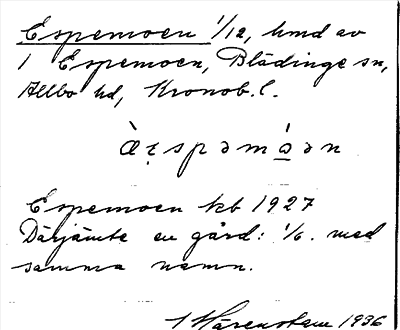 Espemoen 1/12, hmd av
1 Espemoen, Blädinge sn,
Allbo hd, Kronob. l.
Espemoen kb 1927
Därjämte en gård: 1/6. med
samma namn.
1936